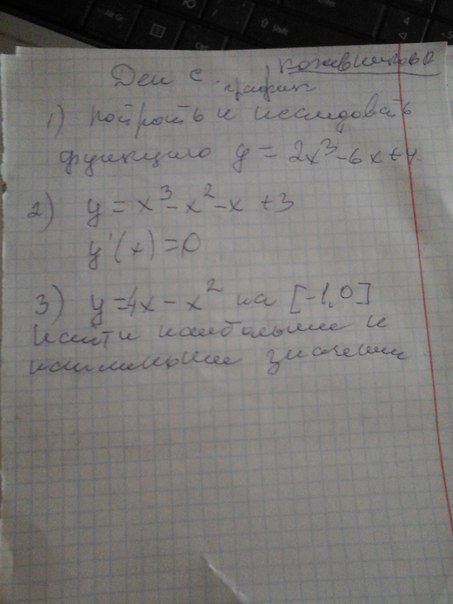 график
1) построить и исследовать
функцию y = 2x³-6x+4
2) y = x³-x²-x+3
y'(x)=0
3) y=4x-x² на [-1,0]
найти наибольшие и
наименьшие значения